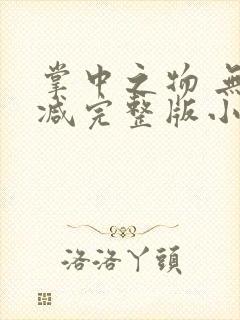 掌中之物 無
减完整版小
洛洛丫頭